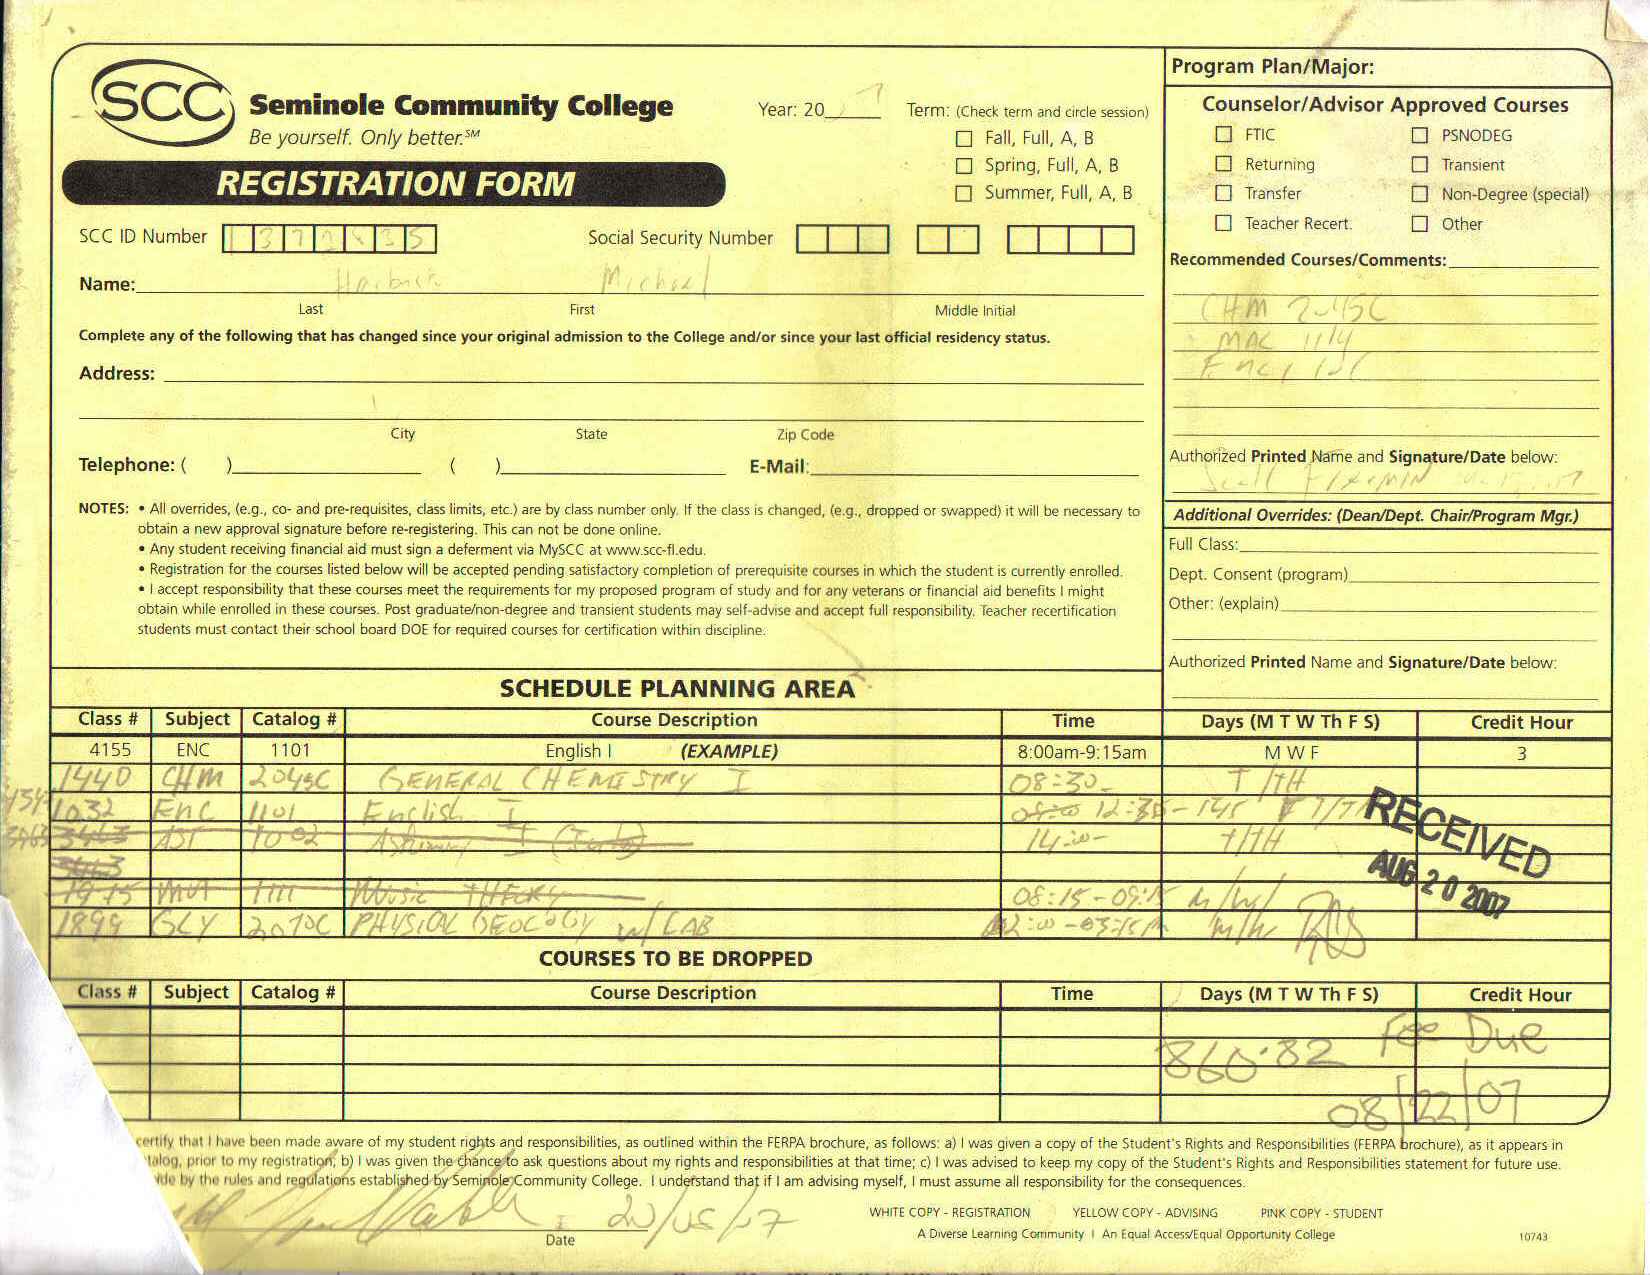 SCC
Seminole Community College
Be yourself. Only better.℠
REGISTRATION FORM
Year: 20__7
Term: (Check term and circle session)
Fall, Full, A, B
Spring, Full, A, B
Summer, Full, A, B
SCC ID Number
Social Security Number
Name: Michael
Last First Middle Initial
Complete any of the following that has changed since your original admission to the College and/or since your last official residency status.
Address:
City State Zip Code
Telephone: ( ) ( ) E-Mail:
NOTES: • All overrides, (e.g., co- and pre-requisites, class limits, etc.) are by class number only. If the class is changed, (e.g., dropped or swapped) it will be necessary to
obtain a new approval signature before re-registering. This can not be done online.
• Any student receiving financial aid must sign a deferment via MySCC at www.scc-fl.edu.
• Registration for the courses listed below will be accepted pending satisfactory completion of prerequisite courses in which the student is currently enrolled.
• I accept responsibility that these courses meet the requirements for my proposed program of study and for any veterans or financial aid benefits I might
obtain while enrolled in these courses. Post graduate/non-degree and transient students may self-advise and accept full responsibility. Teacher recertification
students must contact their school board DOE for required courses for certification within discipline.
Program Plan/Major:
Counselor/Advisor Approved Courses
FTIC PSNODEG
Returning Transient
Transfer Non-Degree (special)
Teacher Recert. Other
Recommended Courses/Comments:
CHM 2045C
MAC 1114
Enc 1101
Authorized Printed Name and Signature/Date below:
Additional Overrides: (Dean/Dept. Chair/Program Mgr.)
Full Class:
Dept. Consent (program)
Other: (explain)
Authorized Printed Name and Signature/Date below:
SCHEDULE PLANNING AREA
Class # Subject Catalog # Course Description Time Days (M T W Th F S) Credit Hour
4155 ENC 1101 English I (EXAMPLE) 8:00am-9:15am M W F 3
1440 CHM 2045C GENERAL CHEMISTRY I 08:30- T/TH
1032 Enc 1101 English I 12:30-145
3463 AST 1002 Astronomy 14:00- T/TH
3463
1975 MUT 1111 Music THEORY 08:15-09:15 M/W/
1899 GLY 2010C PHYSICAL GEOLOGY W/LAB 12:00-03:15PM M/W
RECEIVED
AUG 20 2007
COURSES TO BE DROPPED
Class # Subject Catalog # Course Description Time Days (M T W Th F S) Credit Hour
Fee Due
860.82
08/22/07
certify that I have been made aware of my student rights and responsibilities, as outlined within the FERPA brochure, as follows: a) I was given a copy of the Student's Rights and Responsibilities (FERPA brochure), as it appears in
talog, prior to my registration; b) I was given the chance to ask questions about my rights and responsibilities at that time; c) I was advised to keep my copy of the Student's Rights and Responsibilities statement for future use.
ide by the rules and regulations established by Seminole Community College. I understand that if I am advising myself, I must assume all responsibility for the consequences.
Date
WHITE COPY - REGISTRATION YELLOW COPY - ADVISING PINK COPY - STUDENT
A Diverse Learning Community I An Equal Access/Equal Opportunity College
10743